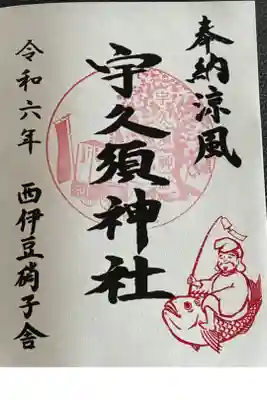 奉納涼風
宇久須神社
令和六年 西伊豆硝子舎